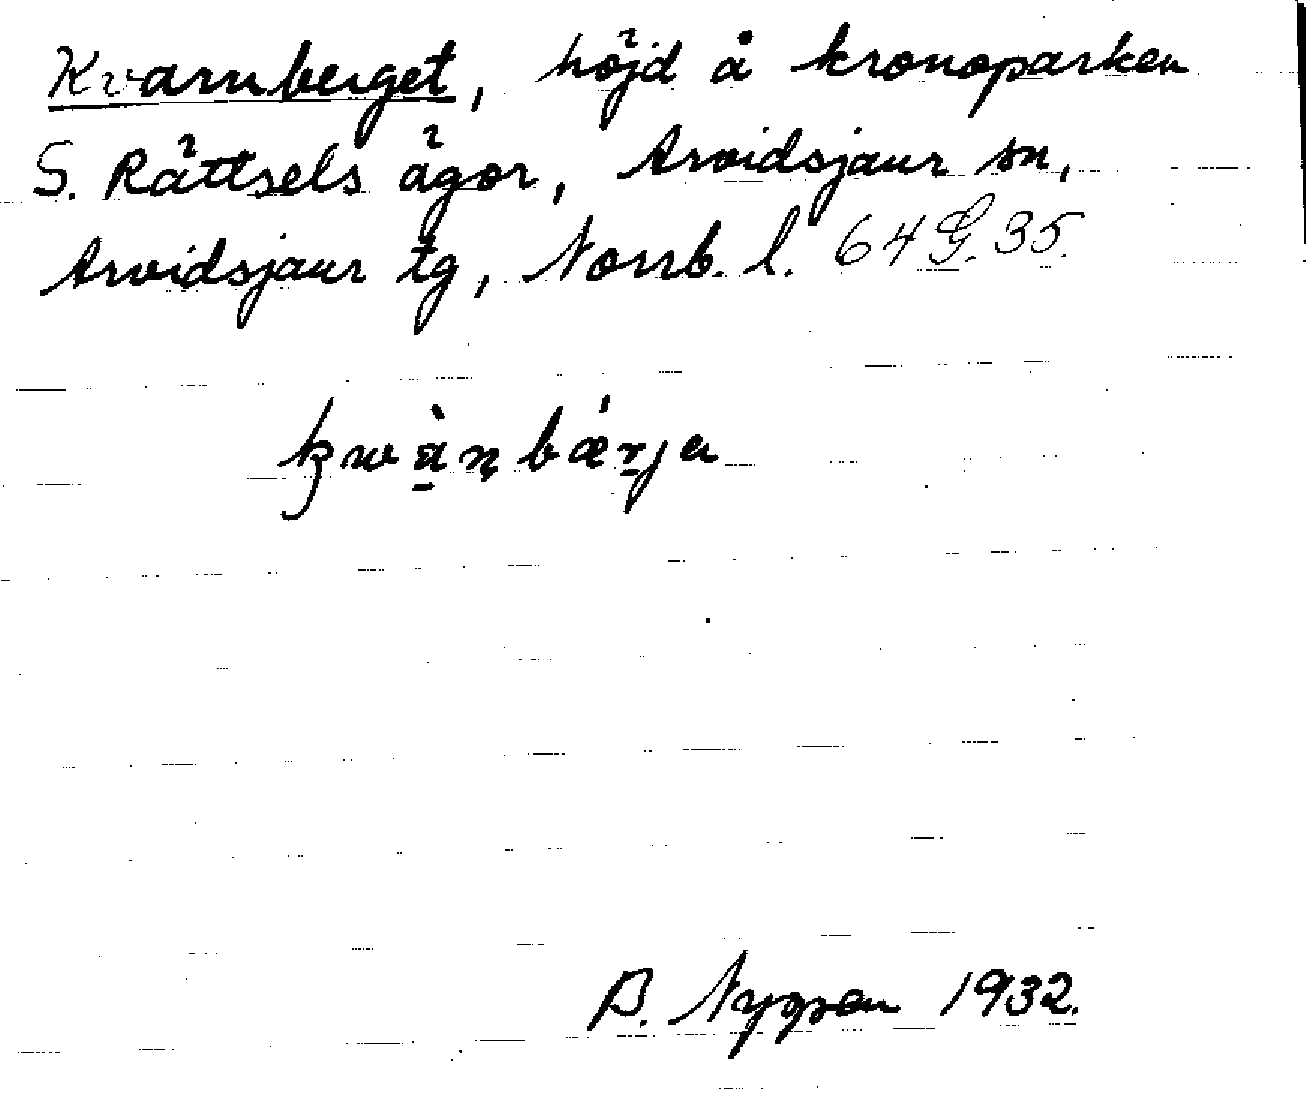 Kvarnberget, höjd å kronoparken
S. Rättsels ägor, Arvidsjaur sn,
Arvidsjaur tg, Norrb. l. 64 G. 35.
kwὰ̠ṇbǽr̠ja
B. Nygren 1932.